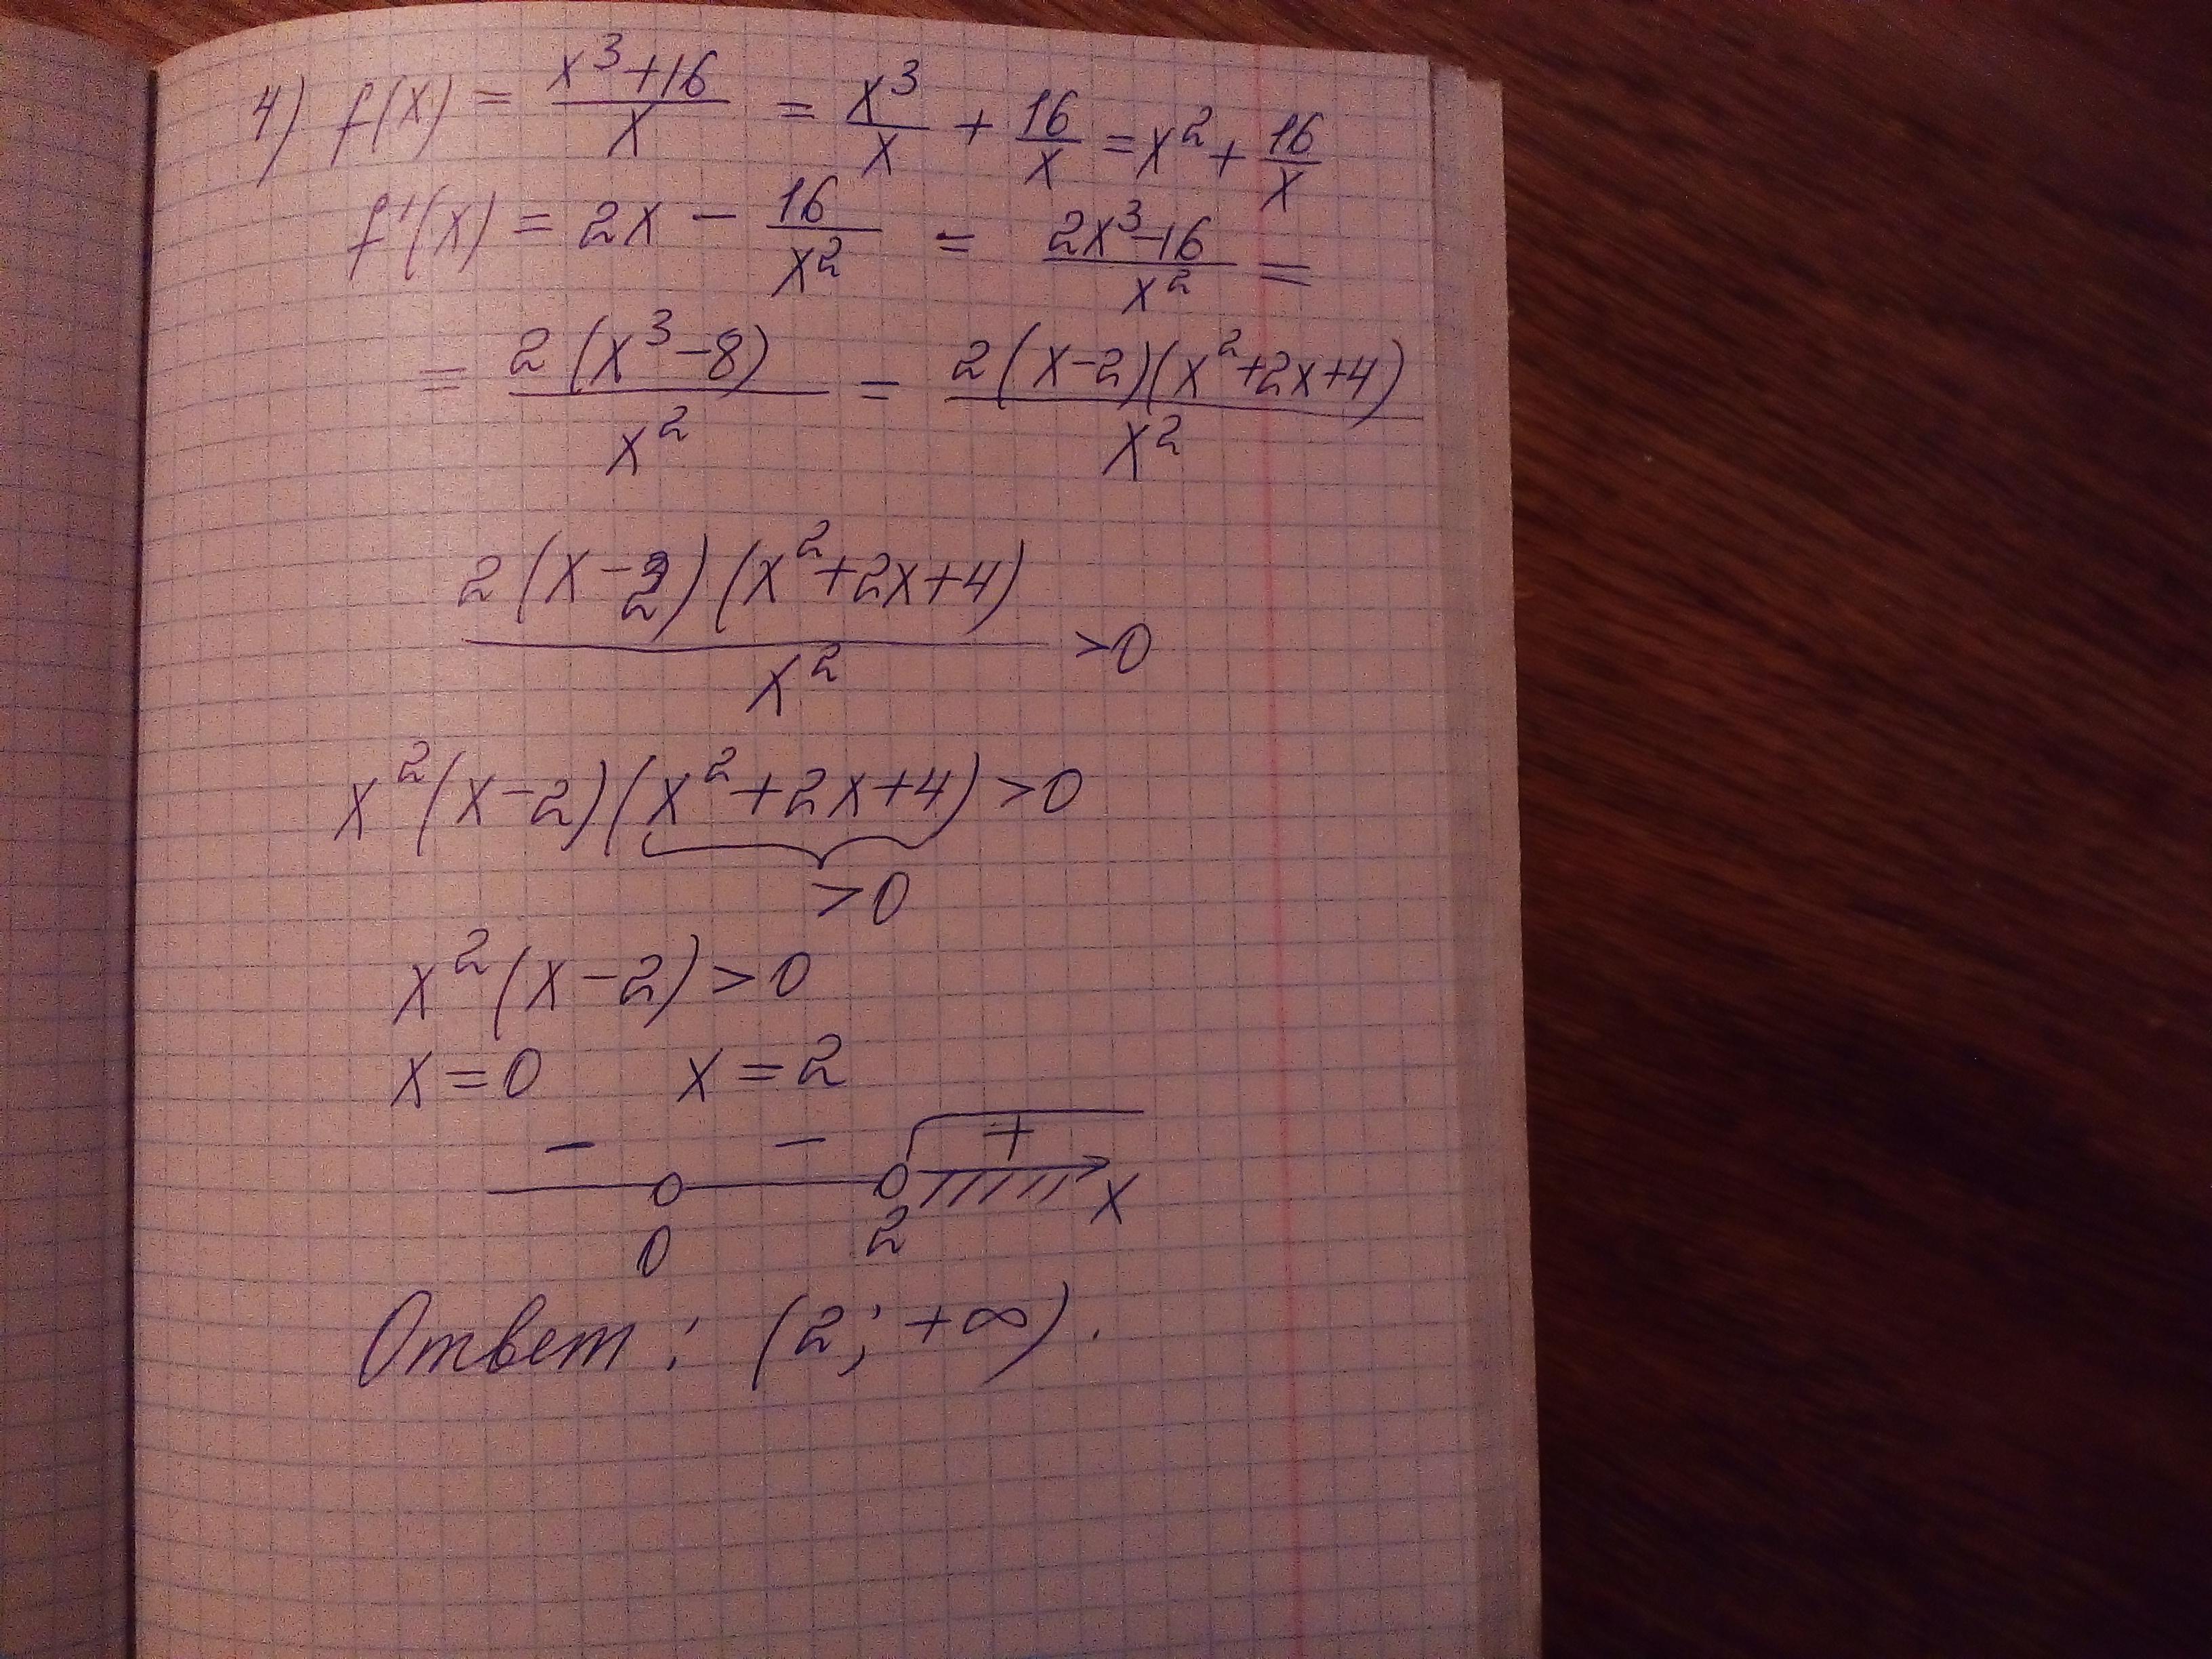 4) f(x) = (x³+16)/x = x³/x + 16/x = x² + 16/x
f'(x) = 2x − 16/x² = (2x³−16)/x² =
= 2(x³−8)/x² = 2(x−2)(x²+2x+4)/x²
2(x−2)(x²+2x+4)/x² >0
x²(x−2)(x²+2x+4)>0
>0
x²(x−2)>0
x=0 x=2
− − +
0 2 x
Ответ: (2; +∞).